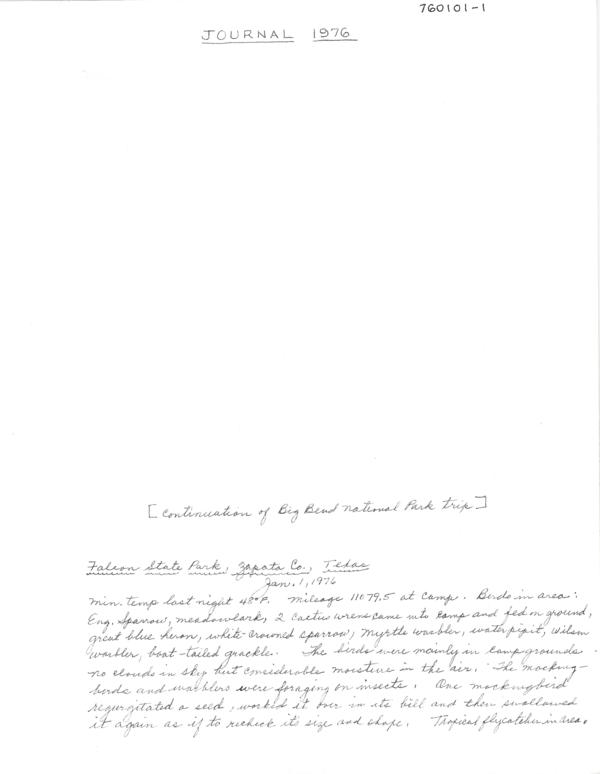 760101-1
JOURNAL 1976
[continuation of Big Bend National Park trip]
Falcon State Park, Zapata Co., Texas
Jan. 1, 1976
Min. temp last night 48°F. Mileage 11079.5 at camp. Birds in area:
Eng. Sparrow, meadowlark, 2 cactus wrens came into camp and fed on ground,
great blue heron, white-crowned sparrow, Myrtle warbler, water pipit, Wilson
warbler, boat-tailed grackle. The birds were mainly in campgrounds.
no clouds in sky but considerable moisture in the air. The mocking-
birds and warblers were foraging on insects. One mockingbird
regurgitated a seed, worked it over in its bill and then swallowed
it again as if to recheck its size and shape. Tropical flycatcher in area.